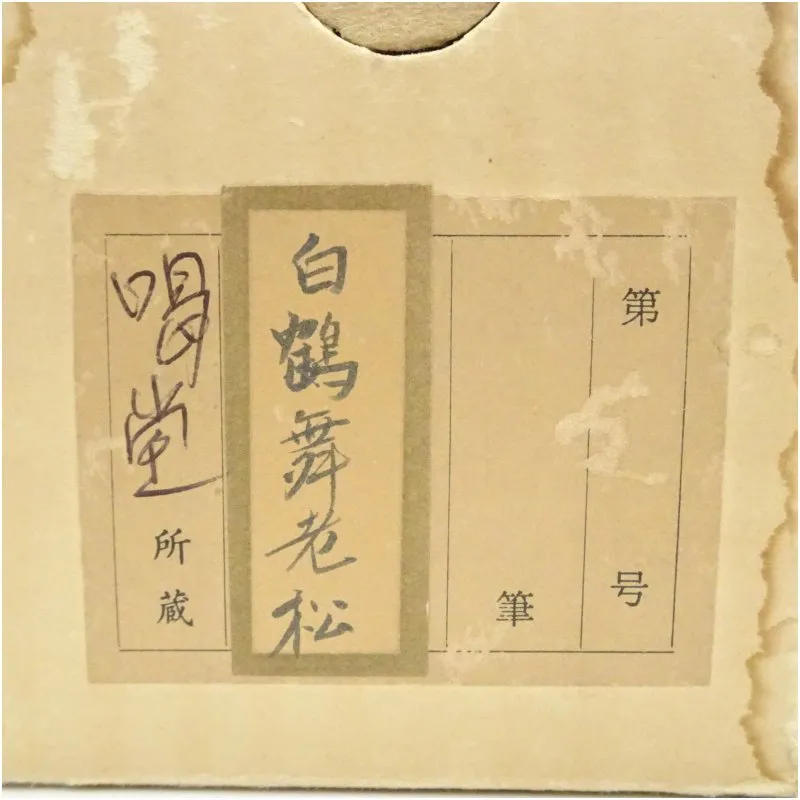 第 号
筆
白鶴舞老松
堂 所蔵